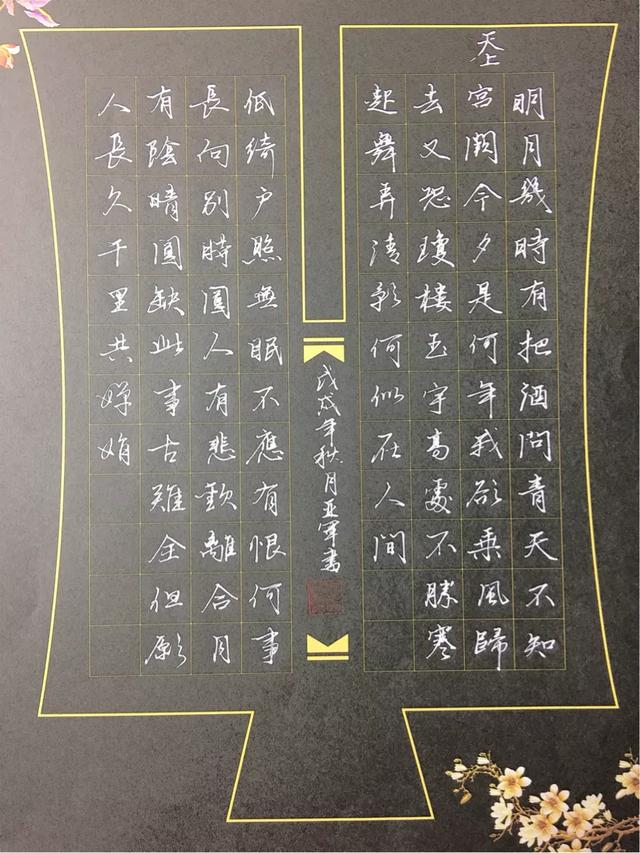 天上
明月幾時有把酒問青天不知
宮闕今夕是何年我欲乘風歸
去又恐瓊樓玉宇高處不勝寒
起舞弄清影何似在人間
戊戌年秋月亚軍書
低綺戶照無眠不應有恨何事
長向別時圓人有悲歡離合月
有陰晴圓缺此事古難全但願
人長久千里共嬋娟